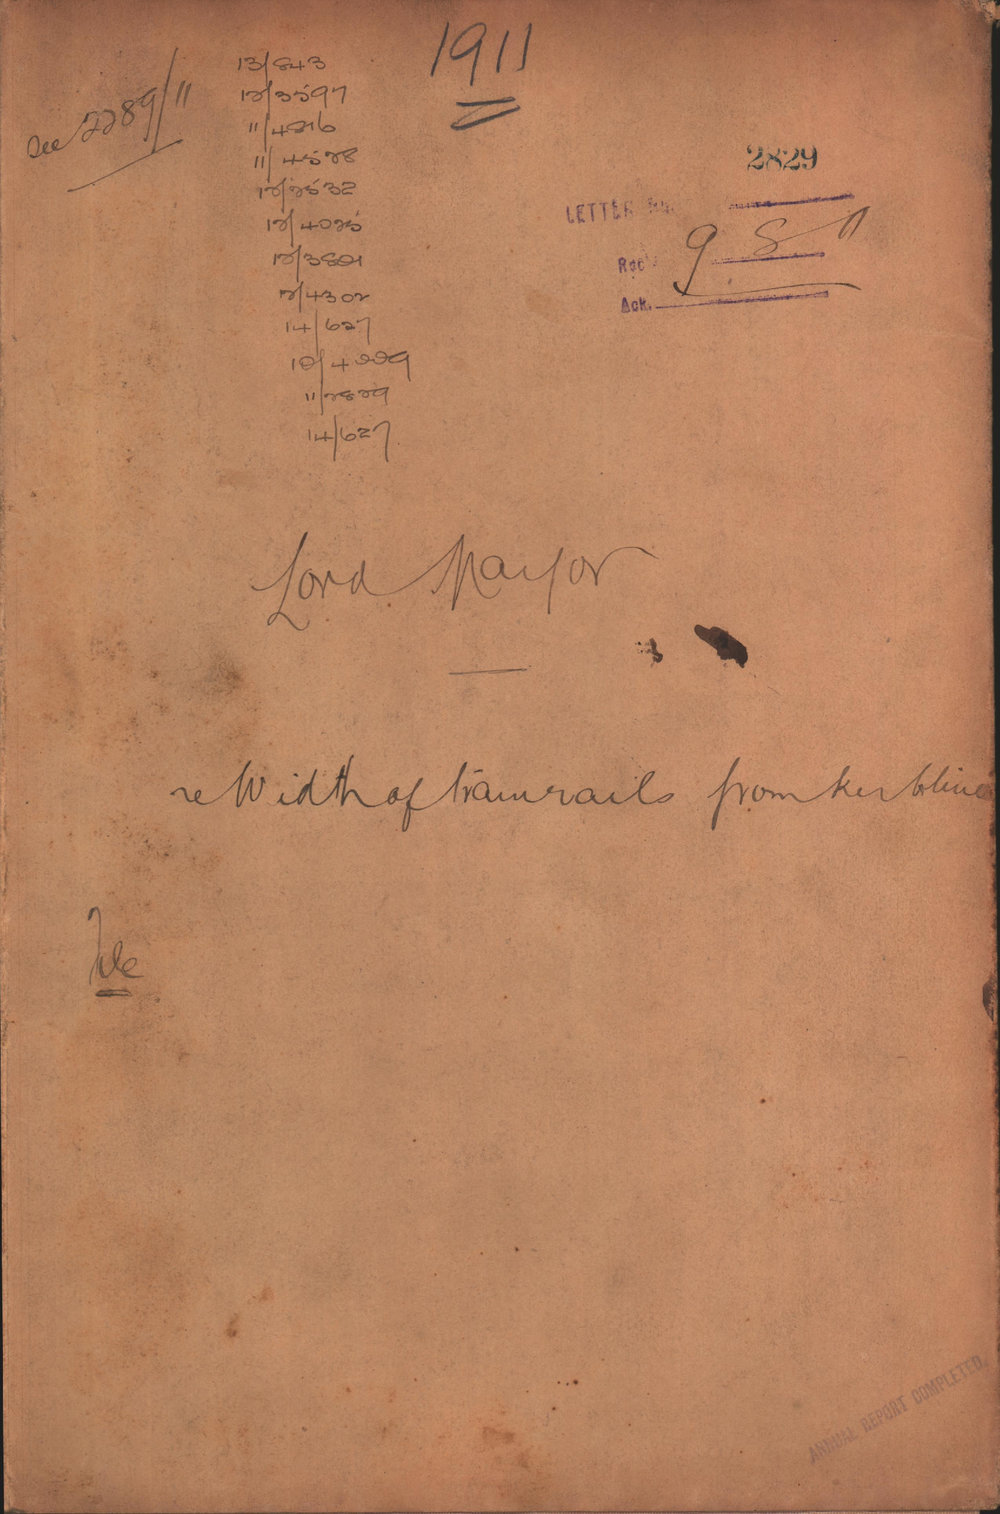 1911
see 2289/11
13/843
12/3597
11/4216
11/4528
12/2532
12/4025
12/3821
12/4302
14/627
12/4229
11/2829
14/627
2829
LETTER
Rec'd 9 8 11
Ack.
Lord Mayor
re Width of tramrails from kerbline
File
ANNUAL REPORT COMPLETED.